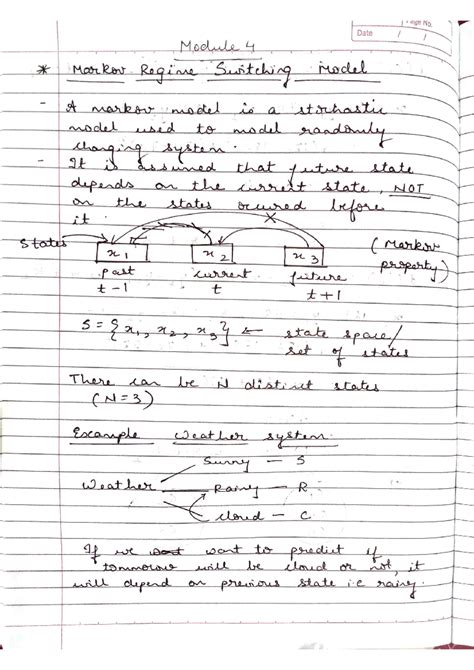 Page No.
Date / /
Module 4
* Markov Regime Switching Model
- A markov model is a stochastic
model used to model randomly
changing system.
- It is assumed that future state
depends on the current state, NOT
on the states occured before
it.
X
States x1 x2 x3 (Markov
property)
past current future
t-1 t t+1
S = {x1, x2, x3} ← state space/
set of states
There can be N distinct states
(N=3)
Example Weather system
Sunny - S
Weather Rainy - R
cloud - C
If we want to predict if
tommorow will be cloud or not, it
will depend on previous state i.e rainy.